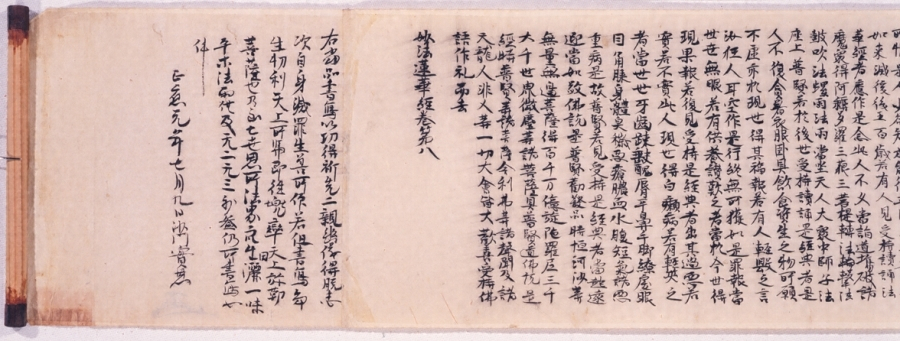 如来滅後後五百歳若有人見受持讀誦法
華經者應作是念此人不久當詣道場破諸
魔衆得阿耨多羅三藐三菩提轉法輪撃法
皷吹法螺雨法雨當坐天人大衆中師子法
座上普賢若於後世受持讀誦是經典者是
人不復貪着衣服臥具飲食資生之物所願
不虚亦於現世得其福報若有人輕毀之言
汝狂人耳空作是行終無所獲如是罪報當
世世無眼若有供養讃歎之者當於今世得
現果報若復見受持是經典者出其過惡若
實若不實此人現世得白癩病若有輕笑之
者當世世牙齒踈缺醜脣平鼻手脚繚戻眼
目角睞身體臭穢惡瘡膿血水腹短氣諸惡
重病是故普賢若見受持是經典者當起遠
迎當如敬佛說是普賢勸發品時恒河沙等
無量無邊菩薩得百千万億旋陀羅尼三千
大千世界微塵等諸菩薩具普賢道佛說是
經時普賢等諸菩薩舎利弗等諸聲聞及諸
天龍人非人等一切大會皆大歡喜受持佛
語作礼而去
妙法蓮華經卷第八
右當品書寫以功得 先二親幽儀得脫
次自身滅罪生善 若但書寫
生忉利天上 即往兜率天上弥勒
菩薩 乃至七世恩所法界衆生 一味
平 法 仍所書寫 
件
正應元年七月九日沙門